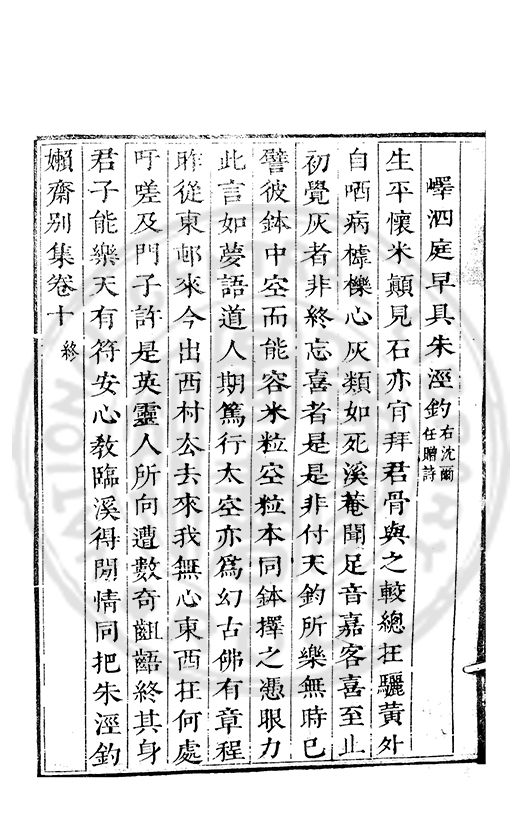 嶧泗庭早具朱涇釣右沈爾任贈詩
生平懷米顛見石亦宜拜君骨與之較總在驪黃外
自哂病樗櫟心灰類如死溪菴聞足音嘉客喜至止
初覺灰者非終忘喜者是是非付天鈞所樂無時已
譬彼鉢中空而能容米粒空粒本同鉢擇之憑眼力
此言如夢語道人期篤行太空亦爲幻古佛有章程
昨從東邨來今出西村去去來我無心東西在何處
吁嗟及門子許是英靈人所向遭數奇齟齬終其身
君子能樂天有符安心教臨溪得閒情同把朱涇釣
嬾齋别集卷十 終